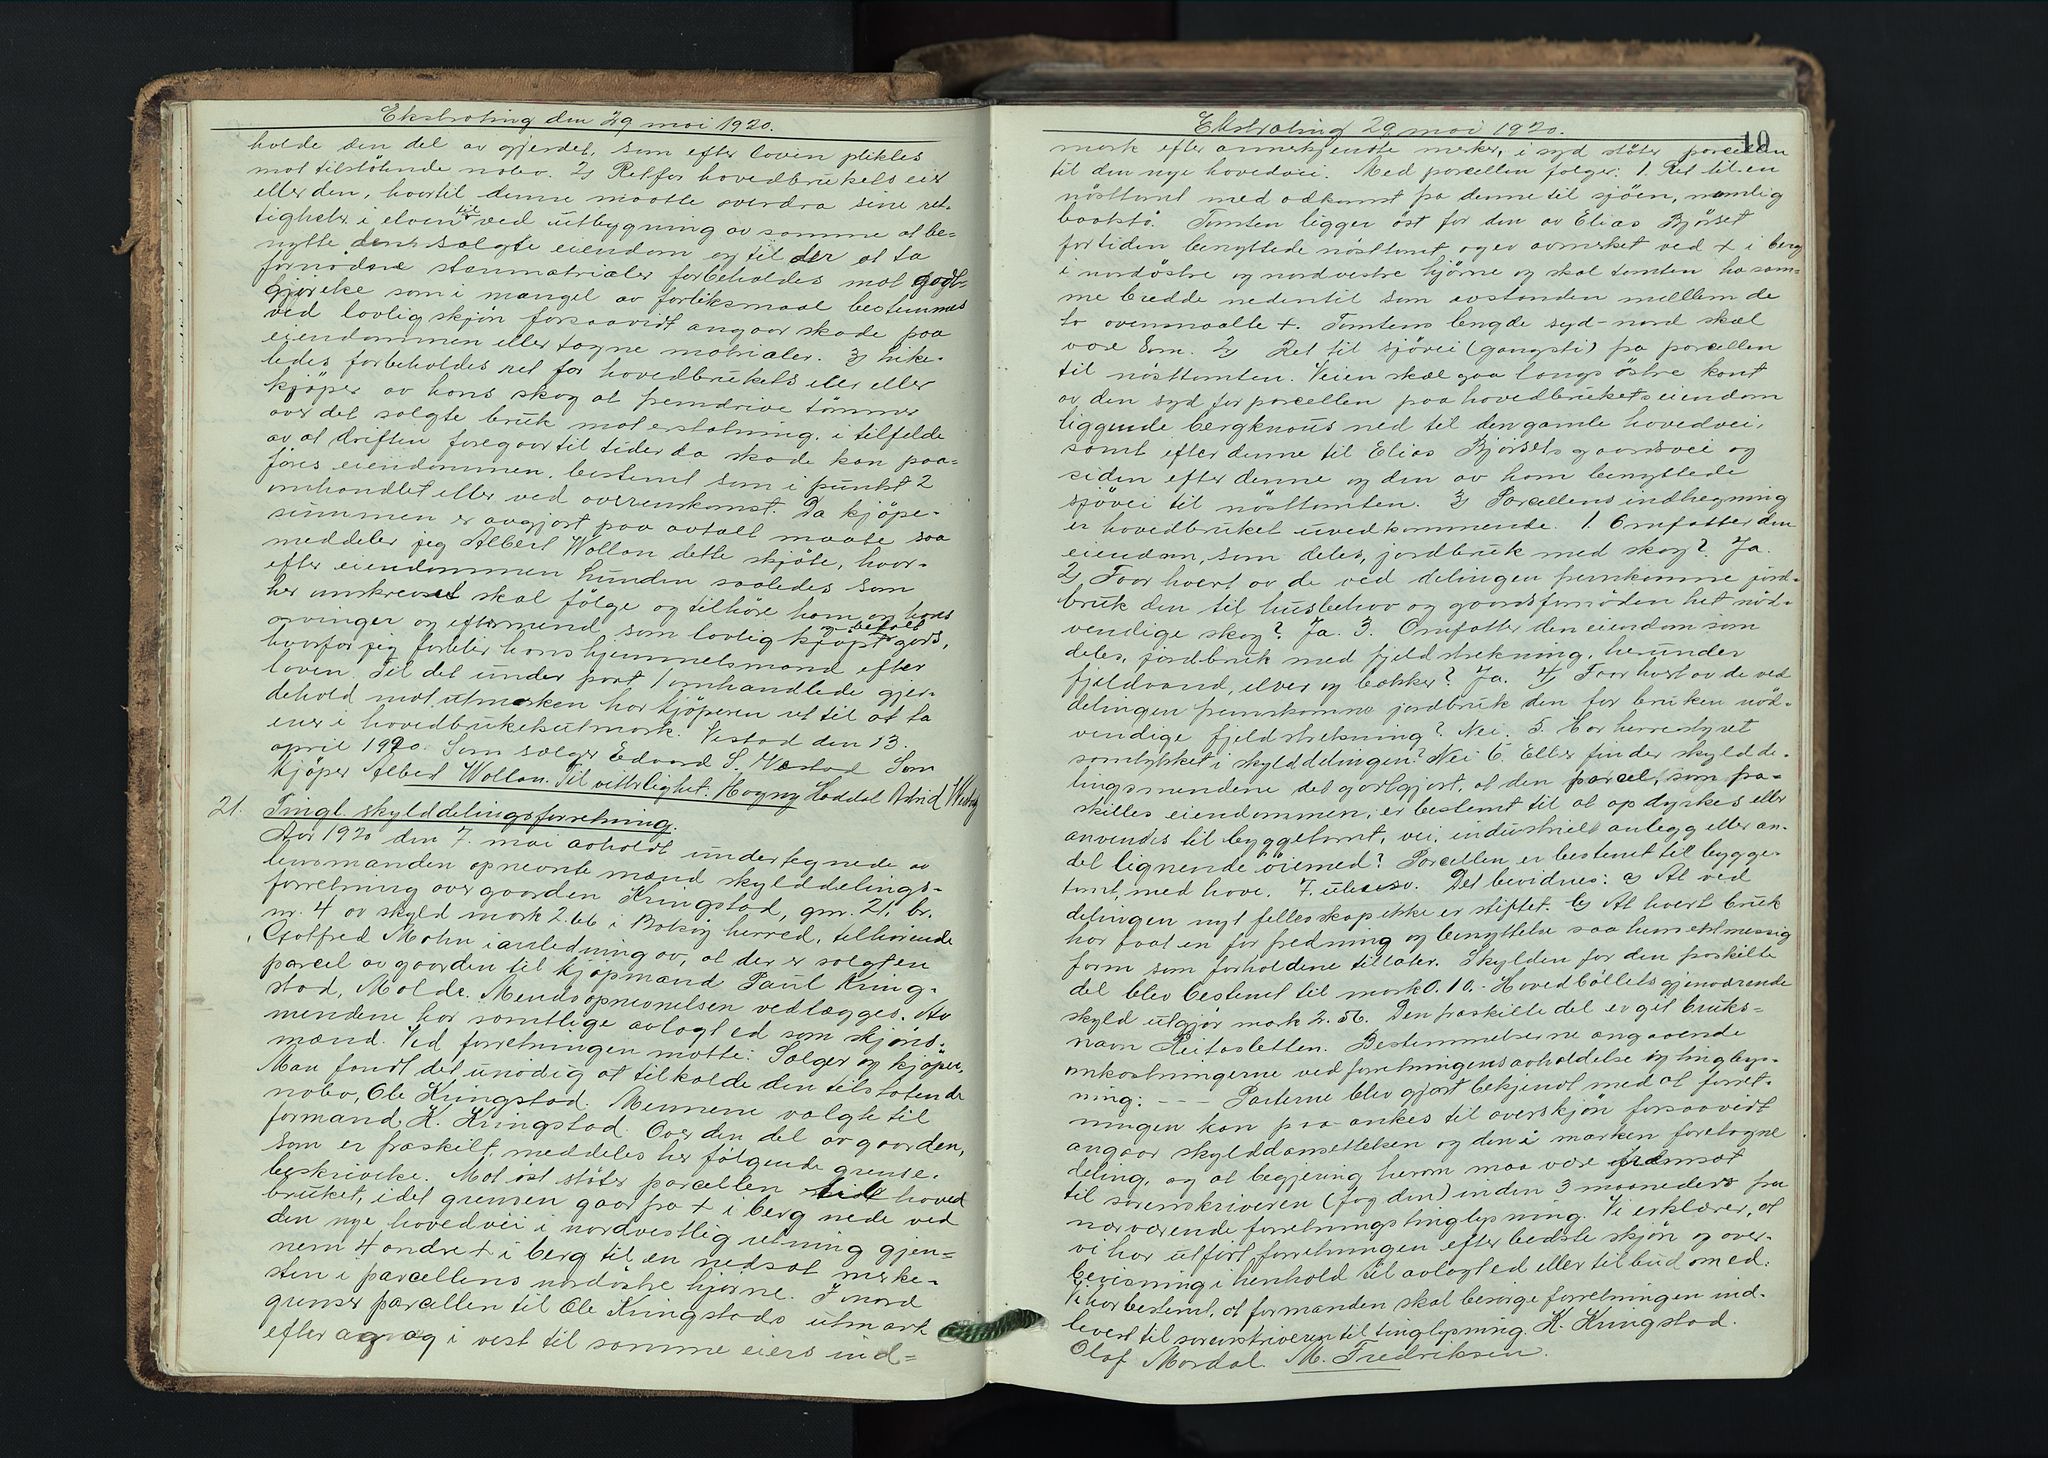 Ekstrating den 29 mai 1920.
holde den del av gjerdet, som efter loven plikles
mot tilstötende nabo. 2) Ret for hovedbrukets eier
eller den, hvortil denne maatte overdra sine ret-
tigheter i elven til ved utbygning av samme at be-
nytte den solgte eiendom og til der at ta
fornødne stenmatrialer forbeholdes mot godt-
gjörelse som i mangel av forliksmaal bestemmes
ved lovlig skjön forsaavidt angaar skade paa
eiendommen eller tagne matrialer. 3) Like-
ledes forbeholdes ret for hovedbrukets eier eller
kjöper av hans skog at fremdrive tömmer
over det solgte bruk mot erstatning, i tilfelde
av at driften foregaar til tider da skade kan paa-
föres eiendommen, bestemt som i punkt 2
omhandlet eller ved overenskomst. Da kjöpe-
summen er avgjort paa avtalt maate saa
meddeler jeg Albert Wollan dette skjöte, hvor-
efter eiendommen Lunden saaledes som
her omskrevet skal fölge og tilhöre ham og hans
arvinger og eftermend som lovlig kjöpt og betalt gods,
hvorfor jeg forblir hans hjemmelsmand efter
loven. Til det under post 1 omhandlede gjer-
dehold mot utmarken har kjöperen ret til at ta
ener i hovedbrukets utmark. Vestad den 13.
april 1920. Som sælger Edvard S. Vestad Som
kjöper Albert Wollan. Til vitterlighet: Hogny Loddal Astrid
21. Tingl. skylddelingsforretning.
Aar 1920 den 7. mai avholdt undertegnede av
lensmanden opnevnte mænd skylddelings-
forretning over gaarden Kringstad, gnr. 21, br.
nr. 4 av skyld mark 2.66 i Bolsöy herred, tilhörende
Gotfred Mohn i anledning av, at der er solgt en
parcel av gaarden til kjöpmand Paul Kring-
stad, Molde. Mendsopnevnelsen vedlægges. Av
mendene har samtlige avlagt ed som skjöns-
mænd. Ved forretningen mötte: Sælger og kjöper.
Man fandt det unödig at tilkalde den tilstötende
nabo, Ole Kringstad. Mennene valgte til
formand K. Kringstad. Over den del av gaarden,
som er fraskilt, meddeles her fölgende grense-
beskrivelse. Mot öst stöter parcellen til hoved
bruket, idet grensen gaar fra + i berg nede ved
den nye hovedvei i nordvestlig retning gjen-
nem 4 andre + i berg til en nedsat merke-
sten i parcellens nordöstre hjörne. I nord
grenser parcellen til Ole Kringstads utmark
efter og i vest til samme eiers ind-
Ekstrating 29 mai 1920.
19
mark efter annerkjendte merker, i syd stöter parcellen
til den nye hovedvei. Med parcellen fölger: 1. Ret til en
nösttomt med adkomst fra denne til sjöen, nemlig
baatstö. Tomten ligger öst for den av Elias Bjöset
for tiden benyttede nösttomt og er avmerket ved + i berg
i nordöstre og nordvestre hjörne og skal tomten ha sam-
me bredde nedentil som avstanden mellem de
to ovenmaalte +. Tomtens lengde syd-nord skal
være 8 m. 2) Ret til sjövei (gangsti) fra parcellen
til nösttomten. Veien skal gaa langs östre kant
av den syd for parcellen paa hovedbrukets eiendom
liggende bergknaus ned til den gamle hovedvei,
samt efter denne til Elias Bjørsets gaardsvei og
siden efter denne og den av ham benyttede
sjövei til nösttomten. 3) Parcellens indhegning
er hovedbruket uvedkommende. 1. Omfatter den
eiendom, som deles, jordbruk med skog? Ja.
2) Faar hvert av de ved delingen fremkomne jord-
bruk den til husbehov og gaardsfornöden het nöd-
vendige skog? Ja. 3. Omfatter den eiendom som
deles, jordbruk med fjeldstrekning, herunder
fjeldvand, elver og bekker? Ja. 4) Faar hvert av de ved
delingen fremkomne jordbruk den for bruken nöd-
vendige fjeldstrekning? Nei. 5. Har herredsstyret
samtykket i skylddelingen? Nei 6. Eller finder skyldde-
lingsmendene det godtgjort, at den parcel, som fra-
skilles eiendommen, er bestemt til at opdyrkes eller
anvendes til byggetomt, vei, industrielt anlegg eller an-
det lignende öiemed? Parcellen er bestemt til bygge-
tomt, med have. 7. utesv. Det bevidnes: a) At ved
delingen nyt fellesskap ikke er stiftet. b) At hvert bruk
har faat en for fredning og benyttelse saa hensiktmessig
form som forholdene tillater. Skylden for den fraskilte
del blev bestemt til mark 0.10. - Hovedböllets gjenværende
skyld utgjör mark 2.56. Den fraskilte del er git bruks-
navn Reitasletten. Bestemmelserne angaaende
omkostningerne ved forretningens avholdelse og tinglys-
ning: — — Parterne blev gjort bekjendt med at forret-
ningen kan paa-ankes til overskjön forsaavidt
angaar skylddansettelsen og den i marken foretagne
deling, og at begjering herom maa være fremsat
til sorenskriveren (fogden) inden 3 maaneder fra
nærværende forretnings tinglysning. Vi erklærer, at
vi har utfört forretningen efter bedste skjön og over-
bevisning i henhold til avlagt ed eller tilbud om ed.
Vi har bestemt, at formanden skal besörge forretningen ind-
levert til sorenskriveren til tinglysning. K. Kringstad.
Olaf Mordal. M. Fredriksen.